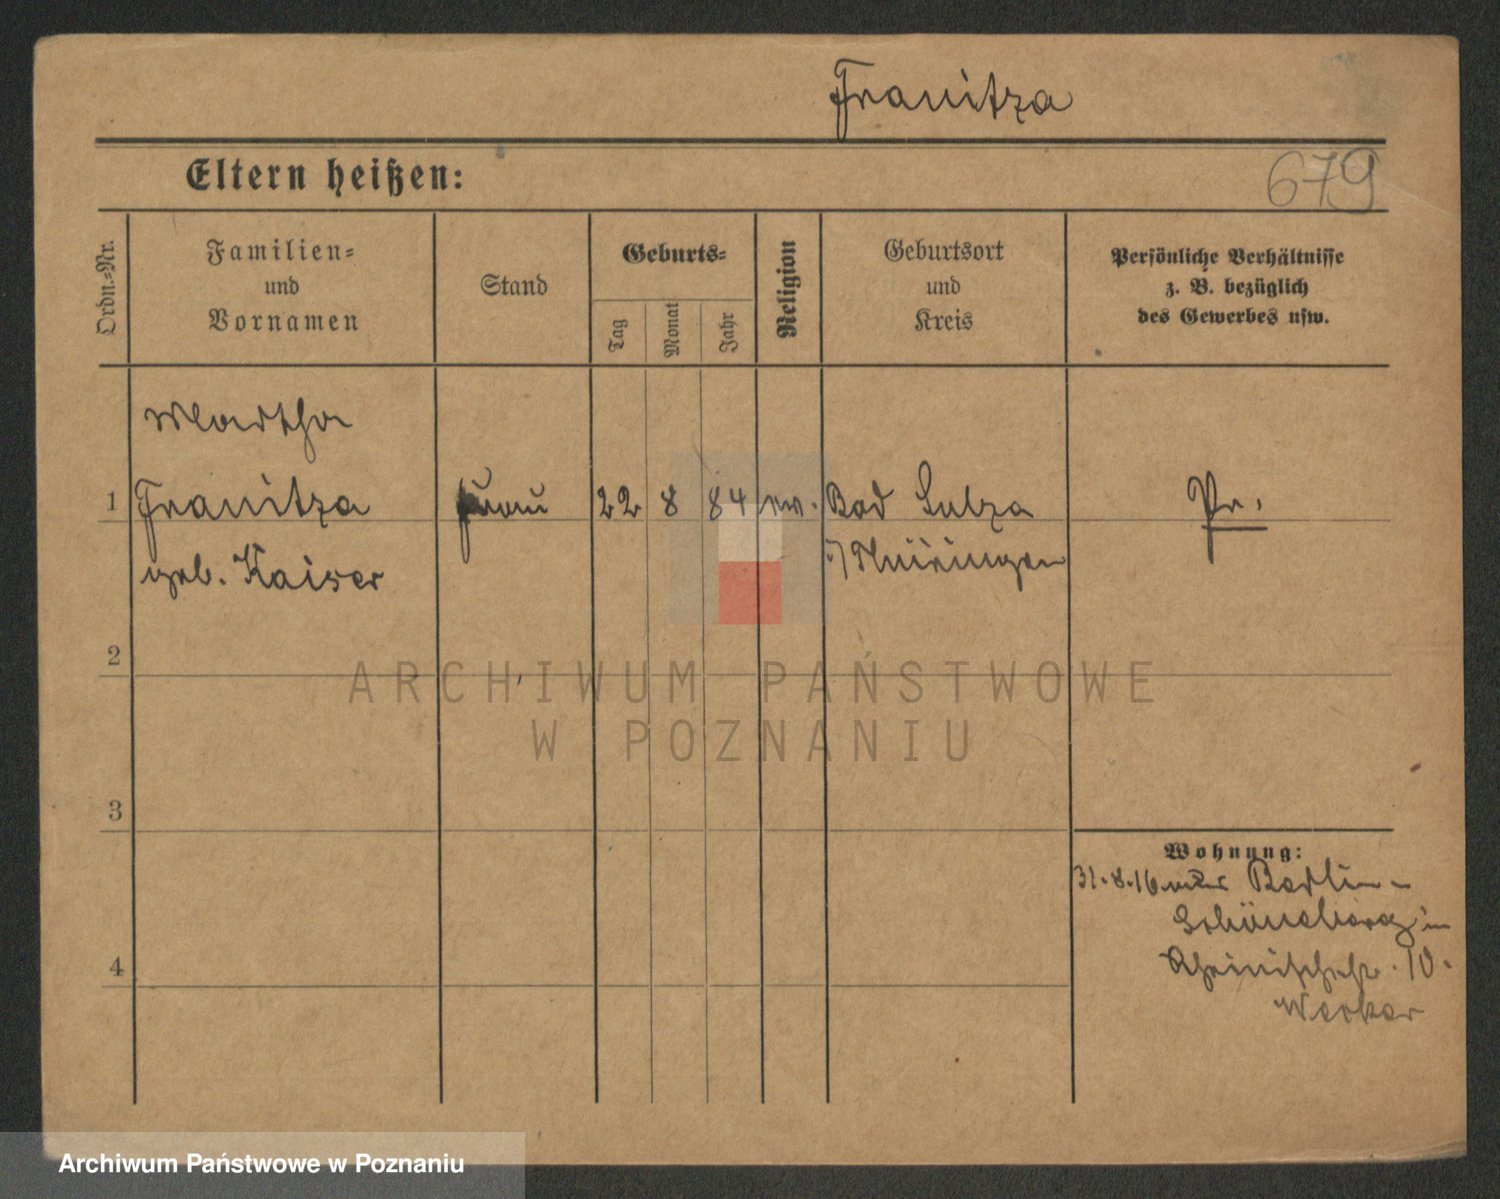 Franitza
Eltern heißen:
679
Ordn.-Nr.
Familien-
und
Vornamen
Stand
Geburts-
Tag
Monat
Jahr
Religion
Geburtsort
und
Kreis
Persönliche Verhältnisse
z. B. bezüglich
des Gewerbes usw.
Martha
1 Franitza Frau 22 8 84 ev. Bad Sulza Pr.
geb. Kaiser i/Thüringen
2
ARCHIWUM PAŃSTWOWE
W POZNANIU
3
Wohnung:
31.8.16 Berlin-
Schöneberg in
Rheinischestr. 10.
4
Archiwum Państwowe w Poznaniu